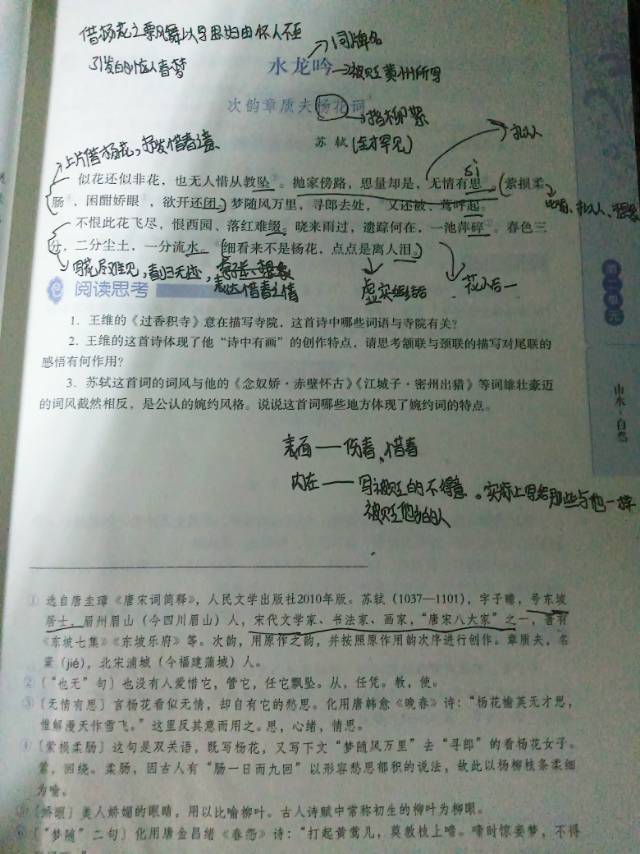 借杨花之飘舞以写思妇由怀人不至
引发的恼人春梦
词牌名
水龙吟
被贬黄州所写
次韵章质夫杨花词
指柳絮
苏轼
(全才罕见)
拟人
上片惜杨花,抒发惜春之意
sì
似花还似非花,也无人惜从教坠②。抛家傍路,思量却是,无情有思③。萦损柔
肠④,困酣娇眼⑤,欲开还闭。梦随风万里,寻郎去处,又还被、莺呼起⑥。
不恨此花飞尽,恨西园、落红难缀。晓来雨过,遗踪何在,一池萍碎。春色三
分,二分尘土,一分流水。细看来不是杨花,点点是离人泪。
因花尽难见,春归无迹,
表达惜春之情
虚实结合
花人合一
阅读思考
1. 王维的《过香积寺》意在描写寺院,这首诗中哪些词语与寺院有关?
2. 王维的这首诗体现了他“诗中有画”的创作特点,请思考颔联与颈联的描写对尾联的
感悟有何作用?
3. 苏轼这首词的词风与他的《念奴娇·赤壁怀古》《江城子·密州出猎》等词雄壮豪迈
的词风截然相反,是公认的婉约风格。说说这首词哪些地方体现了婉约词的特点。
第二单元
山水·自然
表面——伤春、惜春
内在——写被贬的不得意。实际上写给那些与他一样
被贬他乡的人
① 选自唐圭璋《唐宋词简释》,人民文学出版社2010年版。苏轼(1037—1101),字子瞻,号东坡
居士,眉州眉山(今四川眉山)人,宋代文学家、书法家、画家,“唐宋八大家”之一,著有
《东坡七集》《东坡乐府》等。次韵,用原作之韵,并按照原作用韵次序进行创作。章质夫,名
楶(jié),北宋浦城(今福建蒲城)人。
② 〔“也无”句〕也没有人爱惜它,管它,任它飘坠。从,任凭。教,使。
③ 〔无情有思〕言杨花看似无情,却自有它的愁思。化用唐韩愈《晚春》诗:“杨花榆荚无才思,
惟解漫天作雪飞。”这里反其意而用之。思,心绪,情思。
④ 〔萦损柔肠〕这句是双关语,既写杨花,又写下文“梦随风万里”去“寻郎”的看杨花女子。
萦,回绕。柔肠,因古人有“肠一日而九回”以形容愁思郁积的说法,故此以杨柳枝条柔细
为喻。
⑤ 〔娇眼〕美人娇媚的眼睛,用以比喻柳叶。古人诗赋中常称初生的柳叶为柳眼。
⑥ 〔“梦随”二句〕化用唐金昌绪《春怨》诗:“打起黄莺儿,莫教枝上啼。啼时惊妾梦,不得